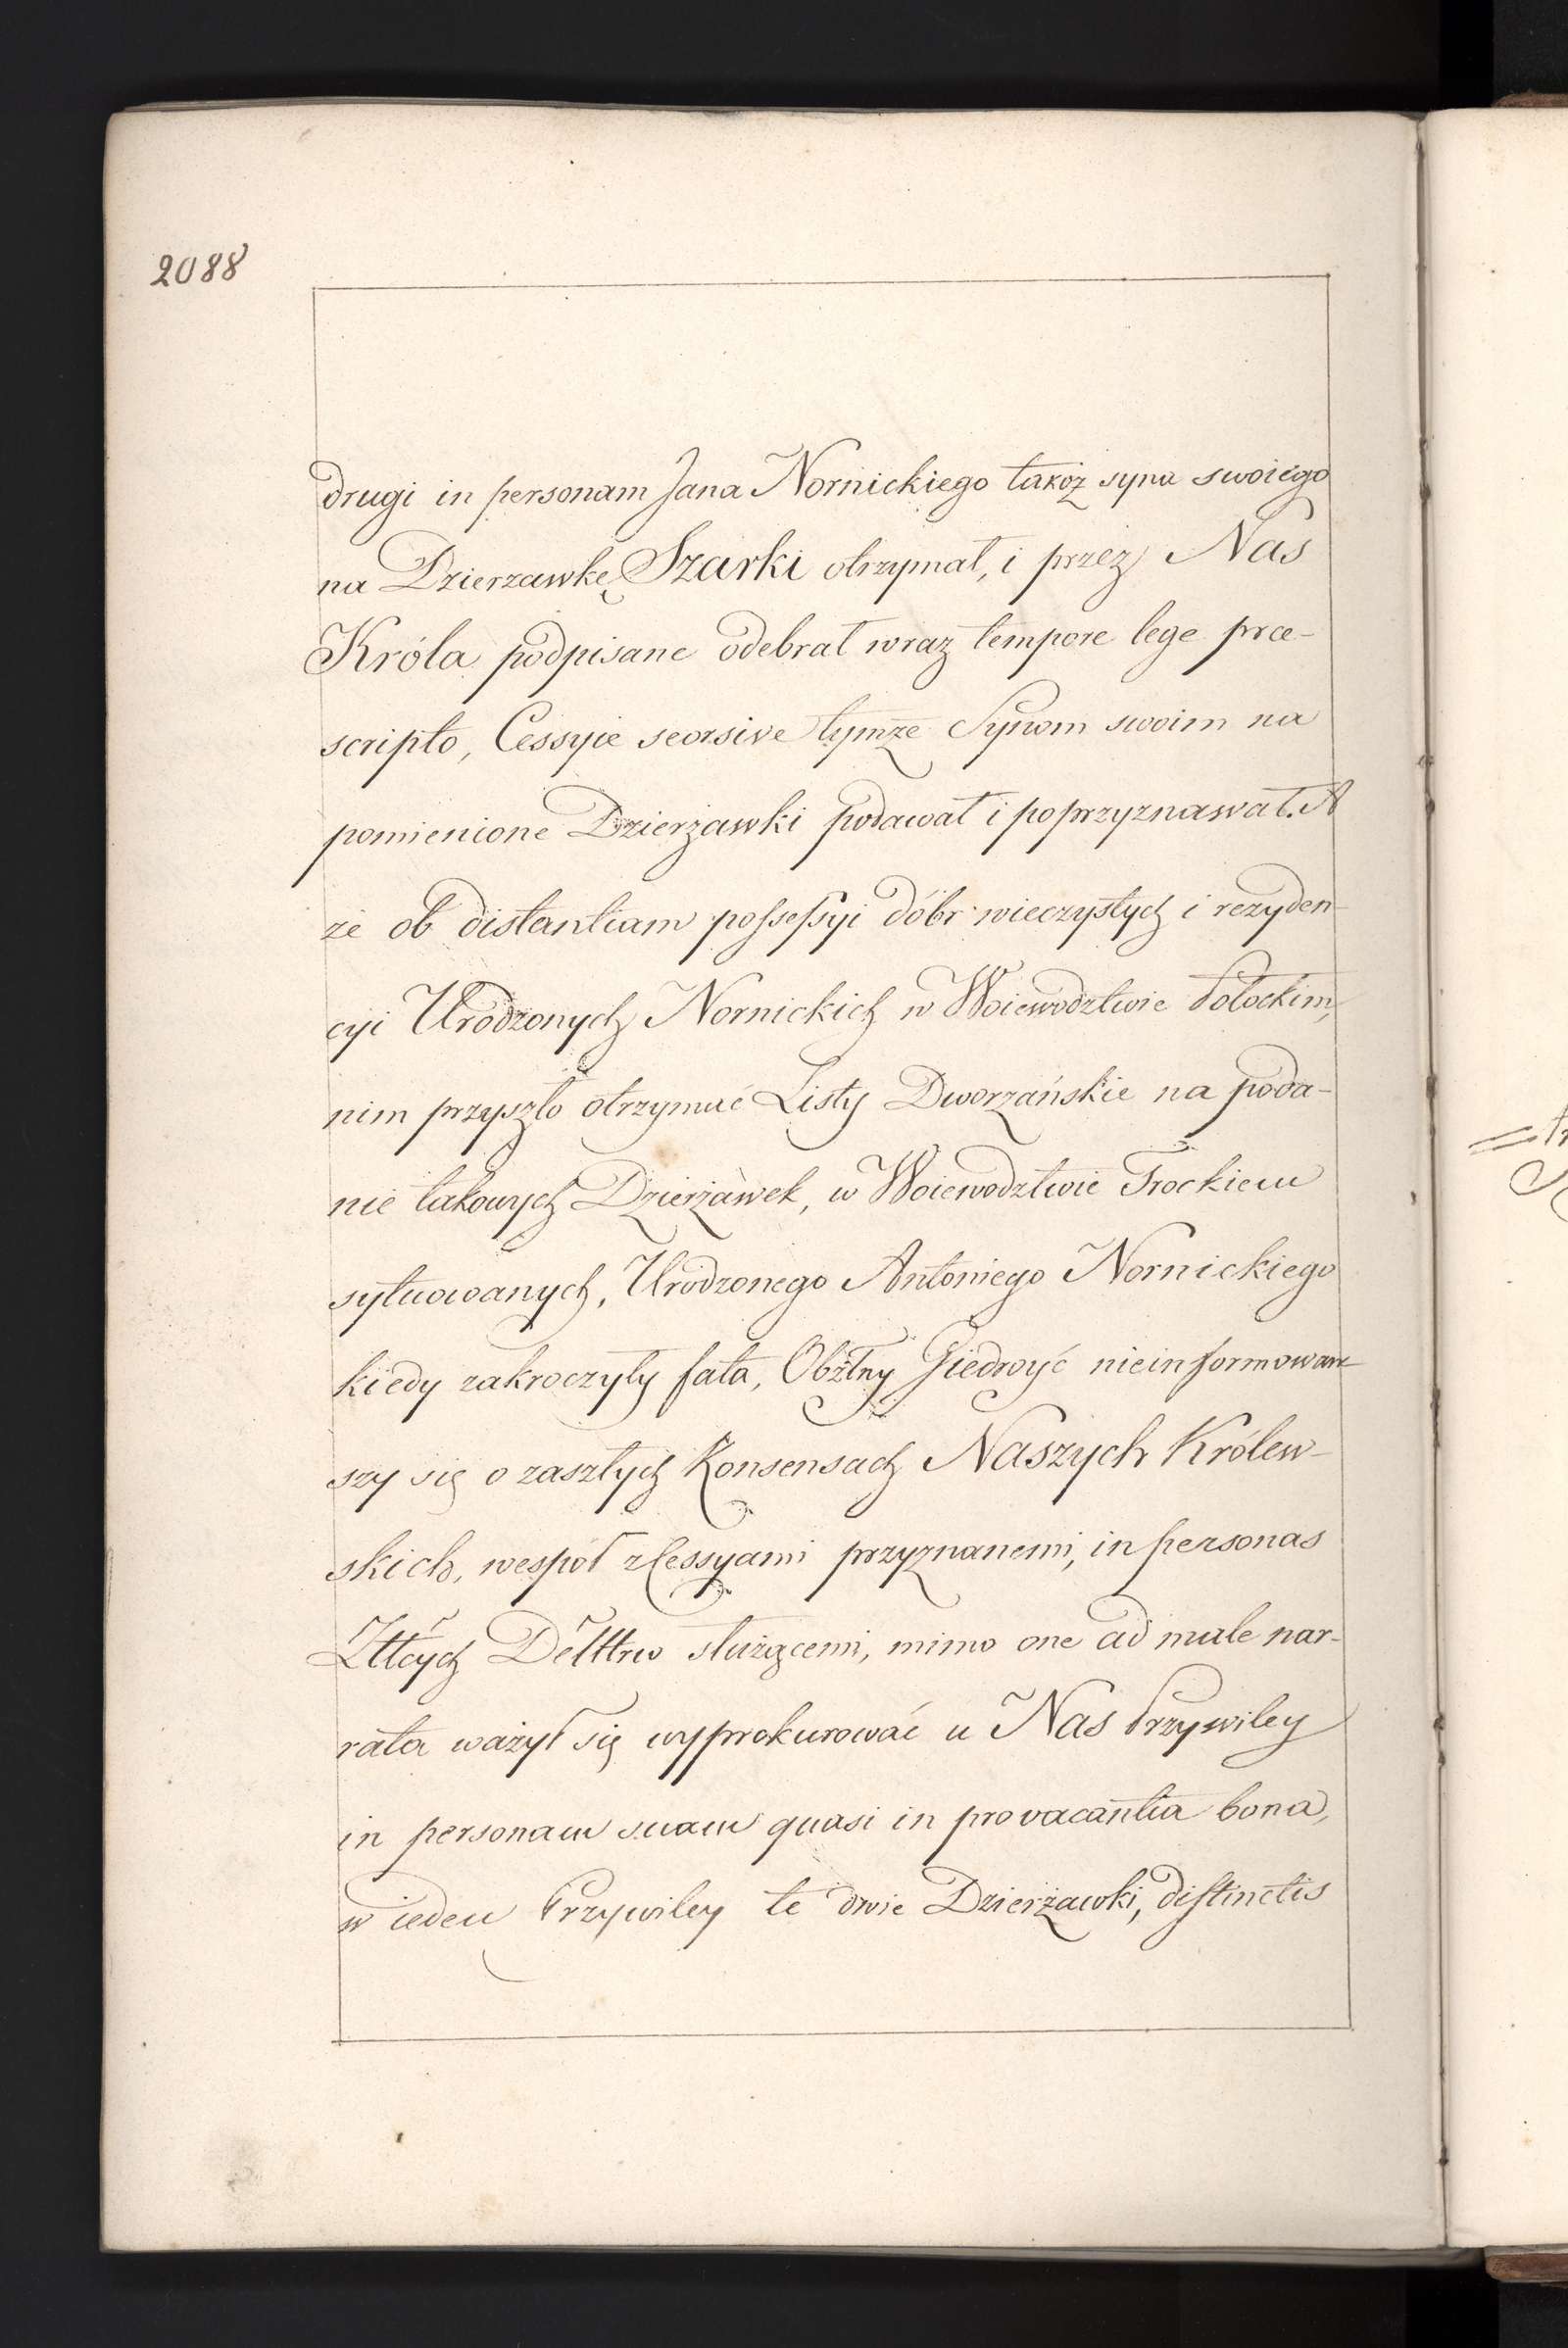 2088
drugi in personam Jana Nornickiego takoż syna swoiego
na Dzierzawkę Szarki otrzymał, i przez Nas
Króla podpisane odebrał wraz tempore lege præ-
scripto, Cessyie seorsive tymże Synom swoim na
pomienione Dzierżawki podawał i poprzyznawał. A
że ob distantiam possessyi dóbr wieczystych i rezyden-
cyi Urodzonych Nornickich w Woiewodztwie Połockim,
nim przyszło otrzymać Listy Dworzańskie na poda-
nie takowych Dzierżawek, w Woiewodztwie Trockiem
sytuowanych, Urodzonego Antoniego Nornickiego
kiedy zakroczyły fata, Obżłny Giedroyć nieinformowaw-
szy się o zaszłych Konsensach Naszych Królew-
skich, wespół z Cessyami przyznanemi, in personas
Żłłcych Dełttrw służącemi, mimo one ad male nar-
rata ważył się wyprokurować u Nas Przywiley
in personam suam quasi in pro vacantia bona,
w ieden Przywiley te dwie Dzierżawki, distinctis